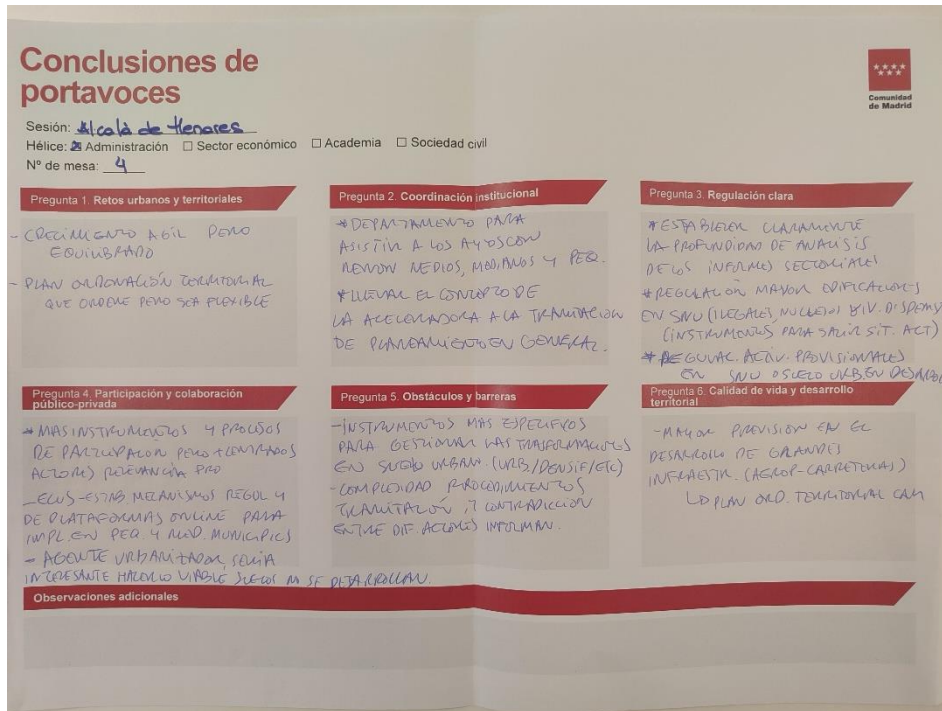 Conclusiones de
portavoces
Comunidad
de Madrid
Sesión: Alcalá de Henares
Hélice: ☒ Administración ☐ Sector económico ☐ Academia ☐ Sociedad civil
Nº de mesa: 4
Pregunta 1. Retos urbanos y territoriales
- CRECIMIENTO AGIL PERO
EQUILIBRADO
- PLAN ORDENACIÓN TERRITORIAL
QUE ORDENE PERO SEA FLEXIBLE
Pregunta 2. Coordinación institucional
* DEPARTAMENTO PARA
ASISTIR A LOS AYTOS CON
MENOR MEDIOS, MEDIANOS Y PEQ.
* LLEVAR EL CONCEPTO DE
LA ACELERADORA A LA TRAMITACIÓN
DE PLANEAMIENTO EN GENERAL.
Pregunta 3. Regulación clara
* ESTABLECER CLARAMENTE
LA PROFUNDIDAD DE ANALISIS
DE LOS INFORMES SECTORIALES
* REGULACIÓN MAYOR EDIFICACIONES
EN SNU (ILEGALES, NUCLEOS VIV. DISPERSAS
(INSTRUMENTOS PARA SALIR SIT. ACT)
* REGULAC. ACTIV. PROVISIONALES
EN SNU O SUELO URB. EN DESARROLLO
Pregunta 4. Participación y colaboración
público-privada
* MAS INSTRUMENTOS Y PROCESOS
DE PARTICIPACION PERO + CENTRADOS
ACTORES RELEVANCIA PRO
- ECUS - ESTAB MECANISMOS REGUL Y
DE PLATAFORMAS ONLINE PARA
IMPL. EN PEQ. Y MED. MUNICIPIOS
- AGENTE URBANIZADOR, SERIA
INTERESANTE HACERLO VIABLE SUELOS NO SE DESARROLLAN.
Pregunta 5. Obstáculos y barreras
- INSTRUMENTOS MAS ESPECIFICOS
PARA GESTIONAR LAS TRASFORMACIONES
EN SUELO URBANO. (URB./DENSIF/ETC)
- COMPLEJIDAD PROCEDIMIENTOS
TRAMITACIÓN, Y CONTRADICCION
ENTRE DIF. ACTORES INFORMAN.
Pregunta 6. Calidad de vida y desarrollo
territorial
- MAYOR PREVISION EN EL
DESARROLLO DE GRANDES
INFRAESTR. (AEROP-CARRETERAS)
PLAN ORD. TERRITORIAL CAM
Observaciones adicionales